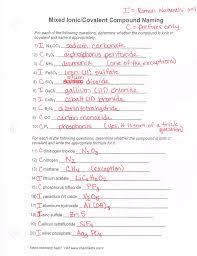 I = Roman Numerals only
C = Prefixes only
Mixed Ionic/Covalent Compound Naming
For each of the following questions, determine whether the compound is ionic or covalent and name it appropriately.
1) I Na2CO3 sodium carbonate
2) C P2O5 diphosphorus pentoxide
3) C NH3 ammonia (one of the exceptions)
4) I FeSO4 iron (II) sulfate
5) C SiO2 dioxide
6) I GaCl3 gallium (III) chloride
7) I CoBr2 cobalt (II) bromide
8) C B2H4
9) I CO carbon monoxide
10) C P4 phosphorus (yes, it is sort of a trick question)
For each of the following questions, determine whether the compound is ionic or covalent and write the appropriate formula for it.
11) C dinitrogen trioxide N2O3
12) C nitrogen N2
13) C methane CH4 (exception)
14) I lithium acetate LiC2H3O2
15) C phosphorus trifluoride PF3
16) I vanadium (V) oxide V2O5
17) I aluminum hydroxide Al(OH)3
18) I zinc sulfide ZnS
19) C silicon tetrafluoride SiF4
20) I silver phosphate Ag3PO4